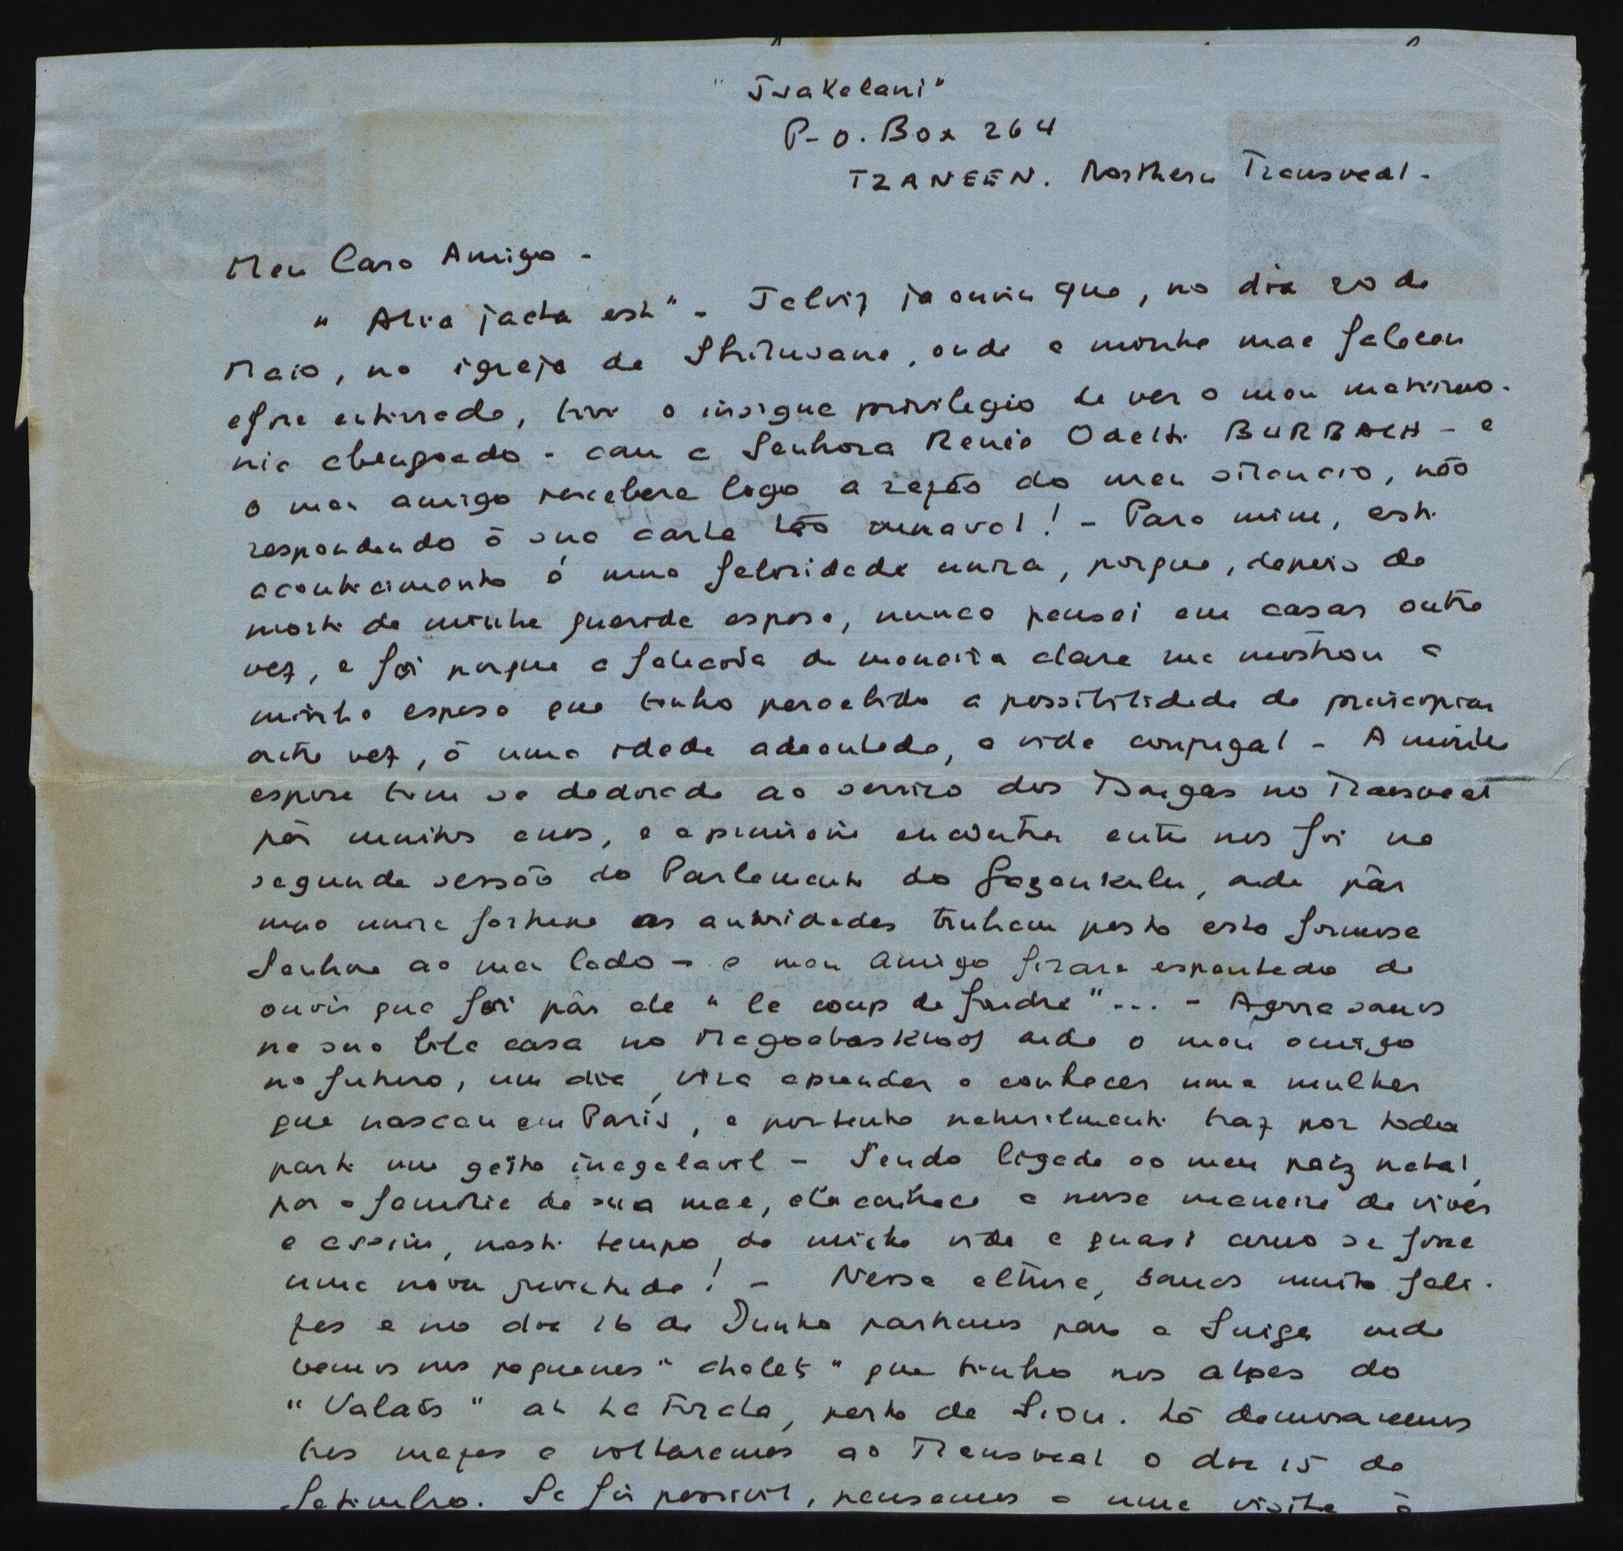 "Tsakelani"
P-O. Box 264
TZANEEN. Northern Transvaal.
Meu Caro Amigo -
" Alea jacta est" - Talvez ja ouviu que, no dia 20 de
Maio, na igreja de Shiluvane, onde a minha mae faleceu
e fora enterrada, tive o insigne privilegio de ver o meu matrimo-
nio abençoado - com a Senhora Renée Odette BURBACH - e
o meu amigo percebera logo a razão do meu silencio, não
respondendo á sua carta tão amavel! - Para mim, este
acontecimento é uma felicidade unica, porque, depois da
morte da minha querida esposa, nunca pensei em casar outra
vez, e foi porque a falecida de maneira clara me mostrou a
minha esposa que tenho percebido a possibilidade de principiar
outra vez, á uma idade adeantada, a vida conjugal - A minha
esposa tem se dedicado ao serviço dos Tsongas no Transvaal
pôr muitos anos, e a primeira encontra entre nos foi na
segunda sessão do Parlemento do Gazankulu, onde pôr
uma unica fortuna as autoridades tinham posto esta formosa
Senhora ao meu lado - o meu amigo ficara espantado de
ouvir que foi pôr ele " le coup de foudre "... - Agora vamos
na sua bela casa no Magoebaskloof onde o meu amigo
no futuro, um dia, vira aprender a conhecer uma mulher
que nasceu em Paris, e portanto naturalmente traz por toda
parte um geito inegalavel - Sendo ligada ao meu paiz natal
por a familia de sua mae, ela conhece a nossa maneira de viver
e assim, neste tempo da minha vida e quasi como se fosse
uma nova juventude! - Nessa altura, somos muito feli-
zes e no dia 16 de Junho partimos para a Suiça onde
vamos nos pequenos " chalets " que tenho nos alpes do
" Valais " at La Forcla, perto de Sion. Lá demoraremos
tres mezes e voltaremos ao Transvaal o dia 15 de
Setembro. Se for possivel, pensamos a uma visita á